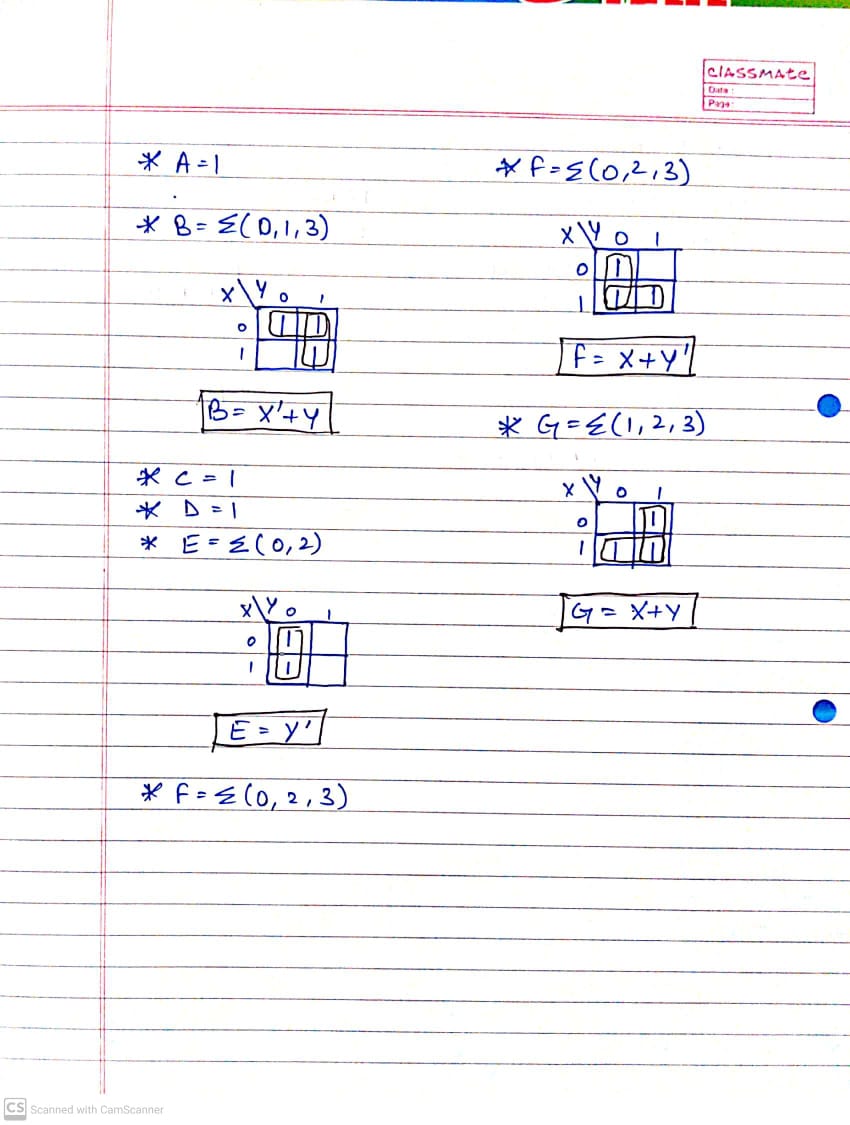 classmate
Date :
Page :
* A = 1
* B = Σ(0,1,3)
X\Y 0 1
0 1 1
1 1
B = X'+Y
* C = 1
* D = 1
* E = Σ(0,2)
X\Y 0 1
0 1
1 1
E = Y'
* F = Σ(0, 2, 3)
* F = Σ(0,2,3)
X\Y 0 1
0 1
1 1 1
F = X+Y'
* G = Σ(1, 2, 3)
X\Y 0 1
0 1
1 1 1
G = X+Y
CS Scanned with CamScanner